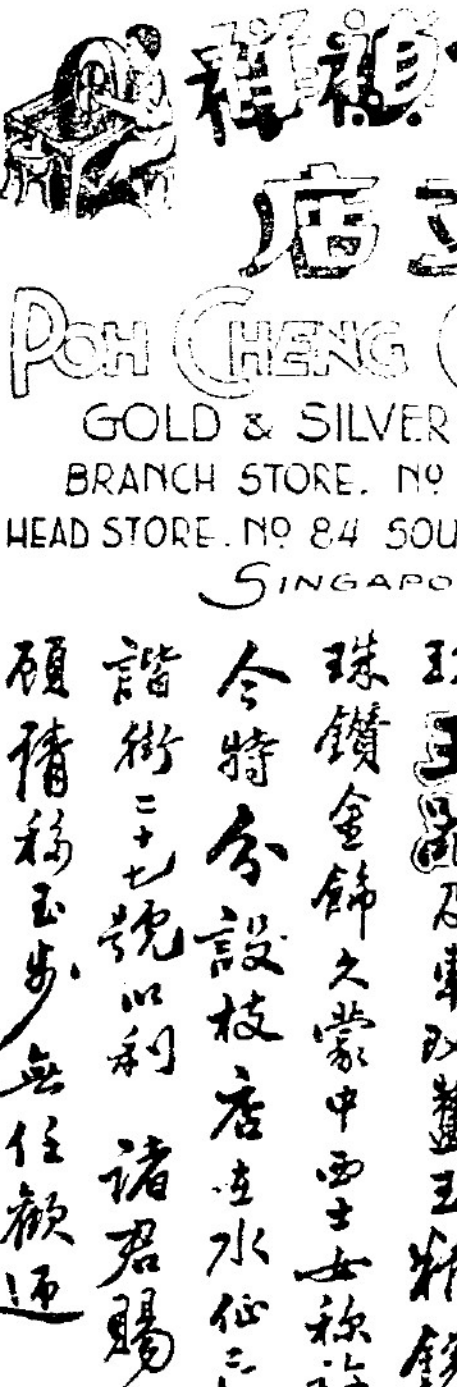 禎祥
店玉
POH CHENG
GOLD & SILVER
BRANCH STORE. Nº
HEAD STORE. Nº 84 SOU
SINGAPO
玉品及車玫瑰玉精
珠鑽金飾久蒙中西士女称
今特分設枝店在水仙
諧街二十七號以利 諸君賜
顧請移玉步無任歡迎